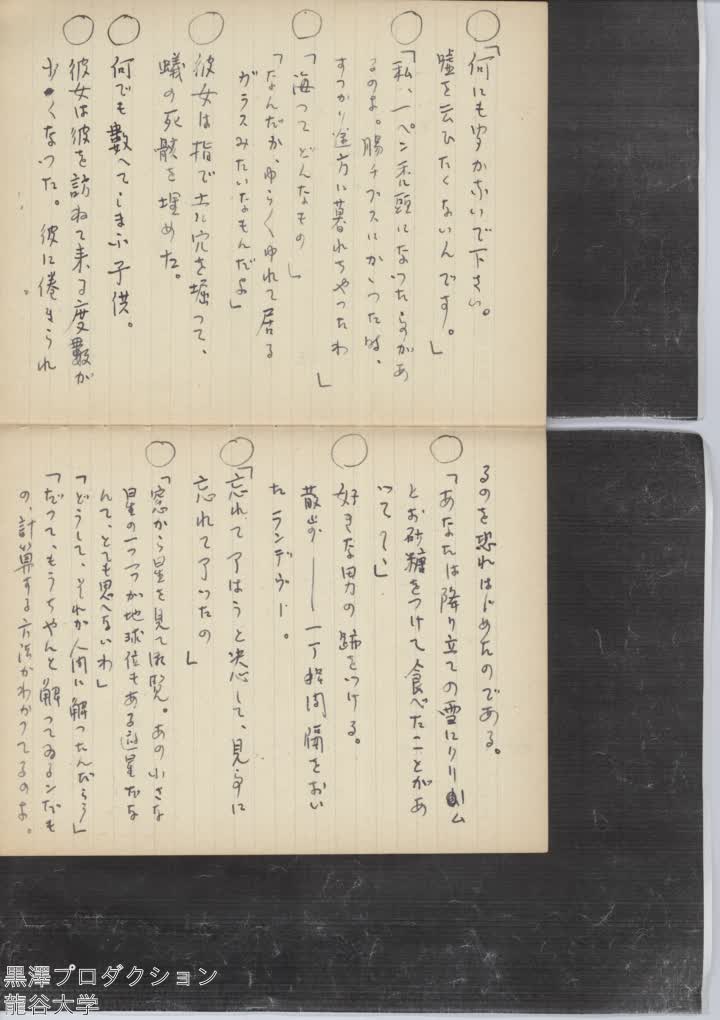 ○「何にも聞かないで下さい。
嘘を云ひたくないんです。」
○「私、一ペン禿頭になつたことがあ
るのよ。腸チブスにかゝつた時、
すつかり途方に暮れちやつたわ」
○「海つてどんなもの」
「なんだか、ゆらくゆれて居る
ガラスみたいなもんだよ」
○彼女は指で土に穴を堀つて、
蟻の死骸を埋めた。
○何でも數へてしまふ子供。
○彼女は彼を訪ねて来る度數が
少くなつた。彼に倦きられ
るのを恐れはじめたのである。
○「あなたは降り立ての雪にクリーム
とお砂糖をつけて食べたことがあ
つて?」
○好きな男の跡をつける。
散歩――一丁程間隔をおい
たランデヴー。
○「忘れて了はうと决心して、見事に
忘れて了つたの」
○「窓から星を見て御覧。あの小さな
星の一つ一つが地球位もある遊星だな
んて、とても思へないわ」
「どうして、それが人間に解つたんだらう」
「だつて、もうちやんと解つてゐるンだも
の、計算する方法がわかつてるのよ。
黒澤プロダクション
龍谷大学